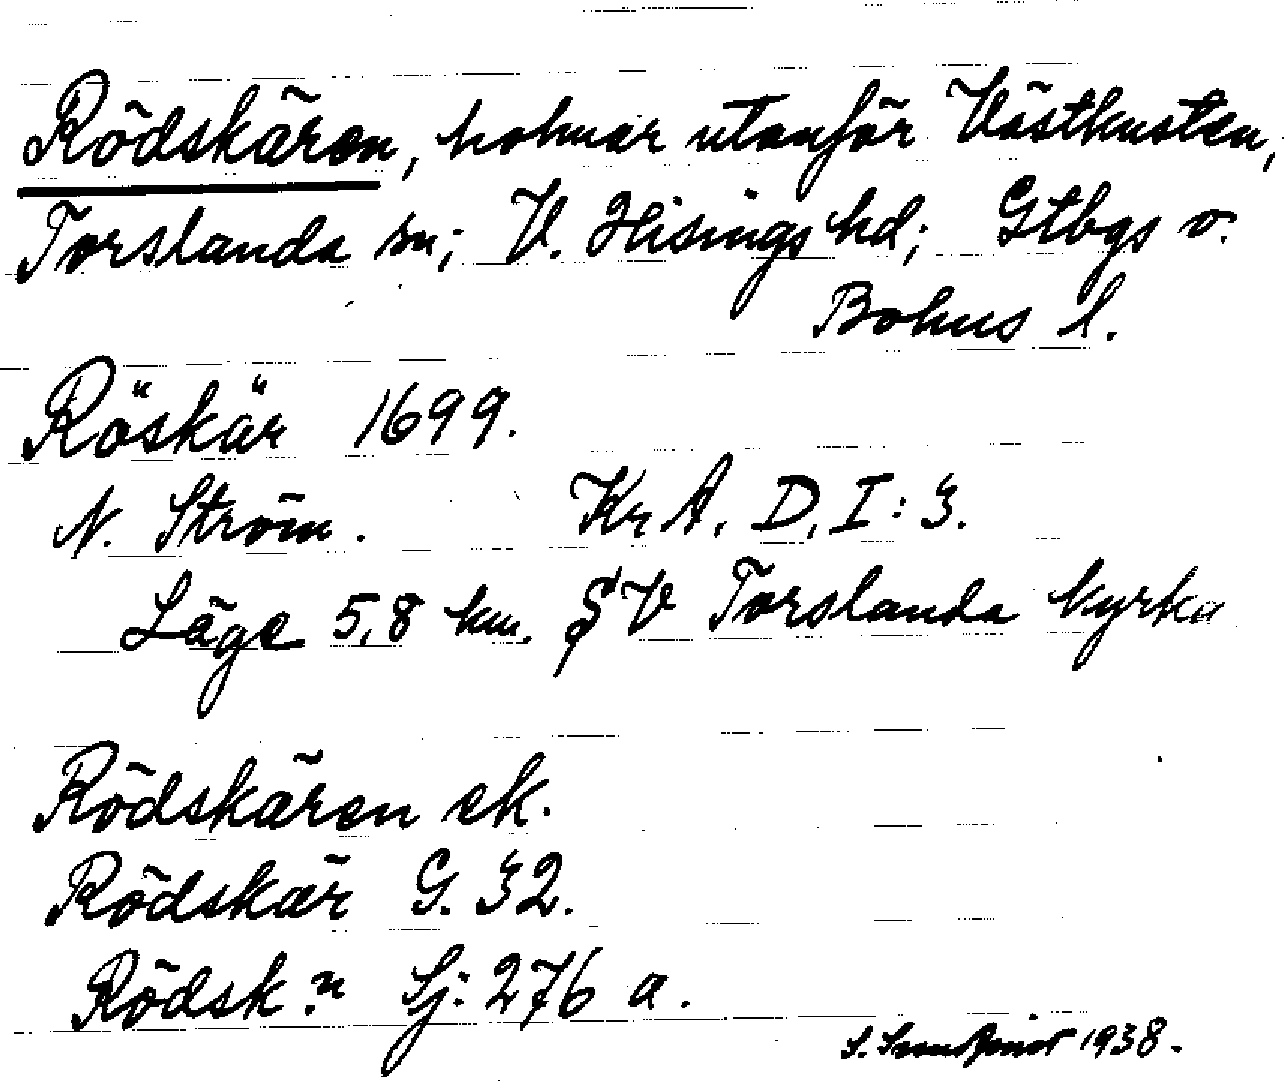 Rödskären, holmar utanför Västkusten,
Torslanda sn; V. Hisings hd; Gtbgs o.
Bohus l.
Röskär 1699.
N. Ström. Kr A. D, I: 3.
Läge 5,8 km. SV Torslanda kyrka
Rödskären ek.
Rödskär G. 32.
Rödsk:n Sj: 276 a.
S. 1938.